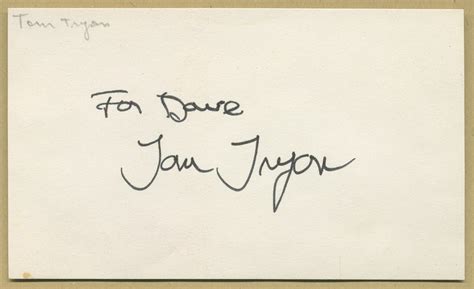 Tom Tryon
For Dave
Tom Tryon